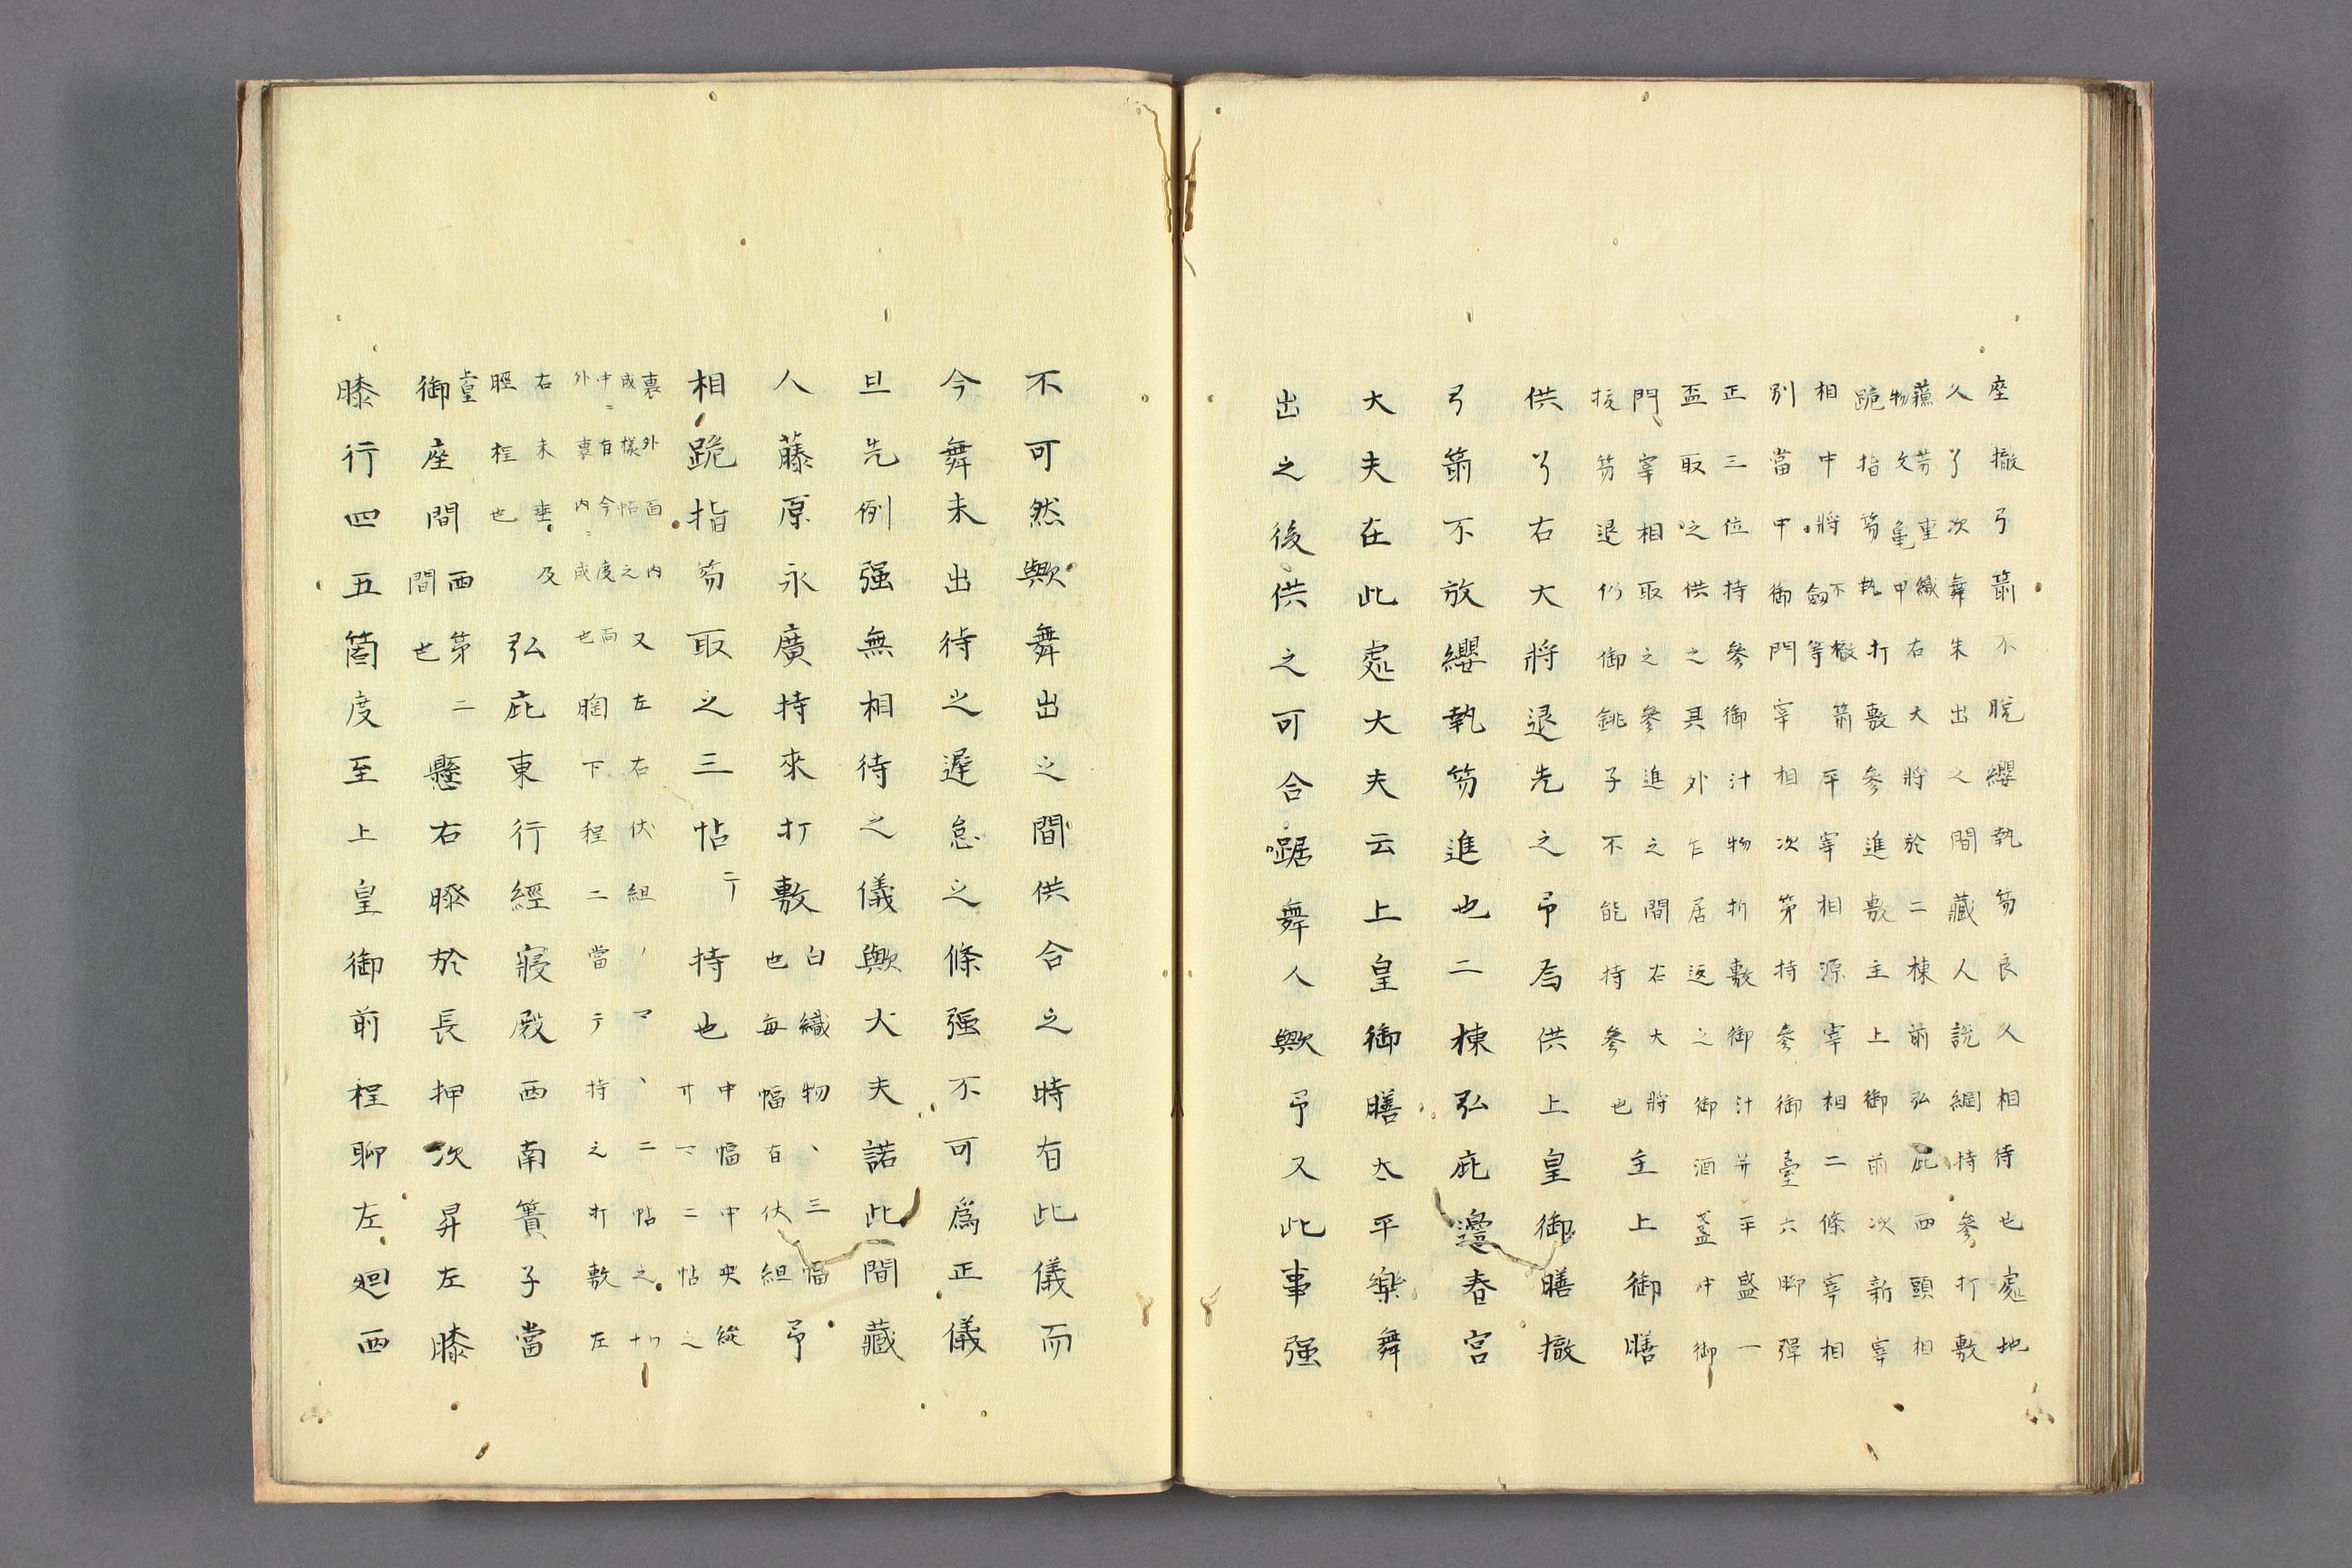 座撤弓箭不脱纓執笏良久相待也處地
久了次舞未出之間藏人說綱持參打敷
蘓芳重織右大將於二棟前弘庇西頭相
物文亀甲
跪指笏執打敷參進敷主上御前次新宰
相中將不撤箭平宰相源宰相二條宰相
劔等
別當中御門宰相次第持參御臺六脚彈
正三位持參御汁物折敷御汁并平盛一
盃取之供之具外乍居返之御酒盞中御
門宰相取之參進之間右大將
挍笏退仍御銚子不能持參也主上御膳
供了右大將退先之予爲供上皇御膳撤
弓箭不放纓執笏進也二棟弘庇邉春宮
大夫在此處大夫云上皇御膳太平樂舞
出之後供之可合踞舞人歟予又此事强
不可然歟舞出之間供合之時有此儀而
今舞未出待之遲怠之條强不可爲正儀
旦先例强無相待之儀歟大夫諾此間藏
人藤原永廣持來打敷白織物、三幅予
也毎幅有伏組
相跪指笏取之三帖テ持也中幅中央縱
裏外面内又左右伏組ノマ、二帖之
成樣帖之
中有今度而
外裏内成也
胸下程二當テ持之打敷左
右未垂及
脛程也
弘庇東行經寢殿西南簀子當
上皇
御座間西第二間也懸右膝於長押次昇左膝
膝行四五箇度至上皇御前程聊左廻西